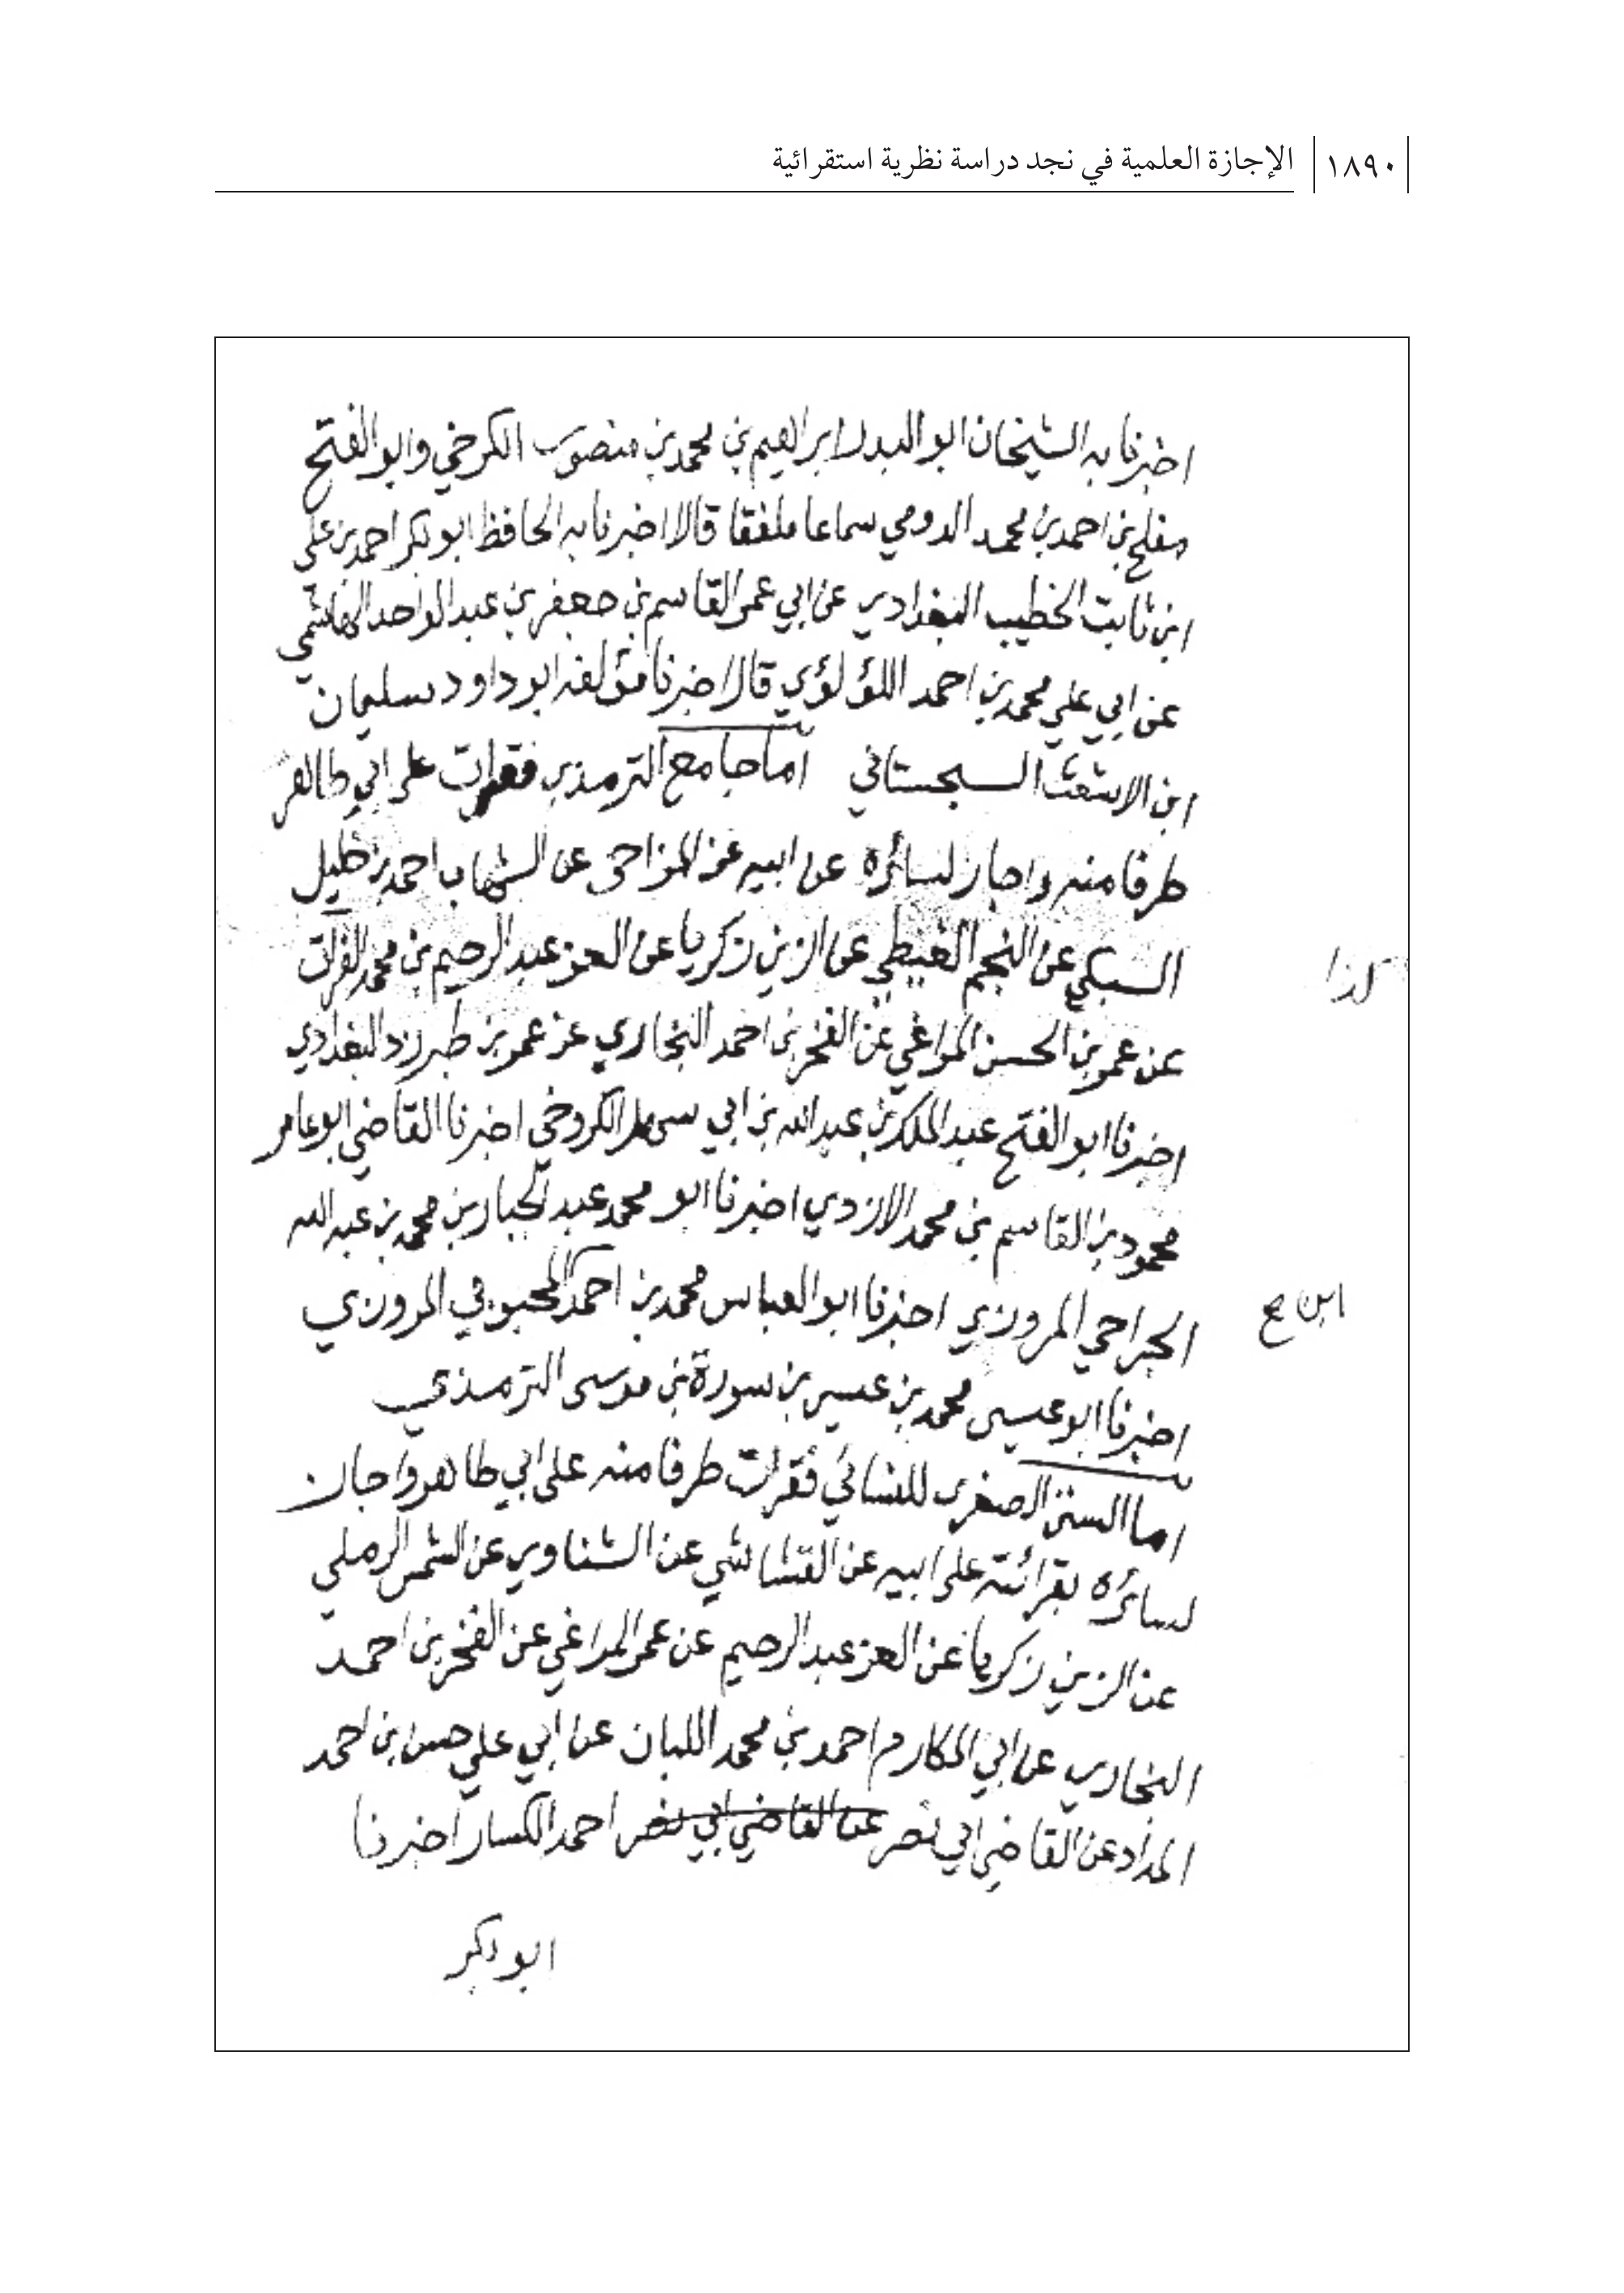 ١٨٩٠ الإجازة العلمية في نجد دراسة نظرية استقرائية
اخبرنا به الشيخان ابو البدر ابراهيم بن محمد بن منصور الكرخي وابو الفتح
مفلح بن احمد بن محمد الدومي سماعا ملفقا قالا اخبرنا به الحافظ ابو بكر احمد بن علي
ابن ثابت الخطيب البغدادي عن ابي عمر القاسم بن جعفر بن عبد الواحد الهاشمي
عن ابي علي محمد بن احمد اللؤلؤي قال اخبرنا مؤلفه ابو داود سليمان
ابن الاشعث السجستاني اما جامع الترمذي فقرات على ابي طاهر
طرفا منه واجاز لسائره عن ابيه عن المزاحي عن الشهاب احمد بن خليل
السبكي عن النجم الغيطي عن الزين زكريا عن العز عبد الرحيم بن محمد الفرات
كذا
عن عمر بن الحسن المراغي عن الفخر بن احمد البخاري عن عمر بن طبرزد البغدادي
اخبرنا ابو الفتح عبد الملك بن عبد الله بن ابي سهل الكروخي اخبرنا القاضي ابو عامر
محمود بن القاسم بن محمد الازدي اخبرنا ابو محمد عبد الجبار بن محمد بن عبد الله
الجراحي المروزي اخبرنا ابو العباس محمد بن احمد المحبوبي المروزي
ابن صح
اخبرنا ابو عيسى محمد بن عيسى بن سورة بن موسى الترمذي
اما السنن الصغرى للنسائي فقرات طرفا منه على ابي طاهر واجاز
لسائره بقرائته على ابيه عن القشاشي عن الشناوي عن الشمس الرملي
عن الزين زكريا عن العز عبد الرحيم عن عمر المراغي عن الفخر بن احمد
البخاري عن ابي المكارم احمد بن محمد اللبان عن ابي علي حسن بن احمد
الحداد عن القاضي ابي نصر عن القاضي ابي نصر احمد الكسار اخبرنا
ابو بكر